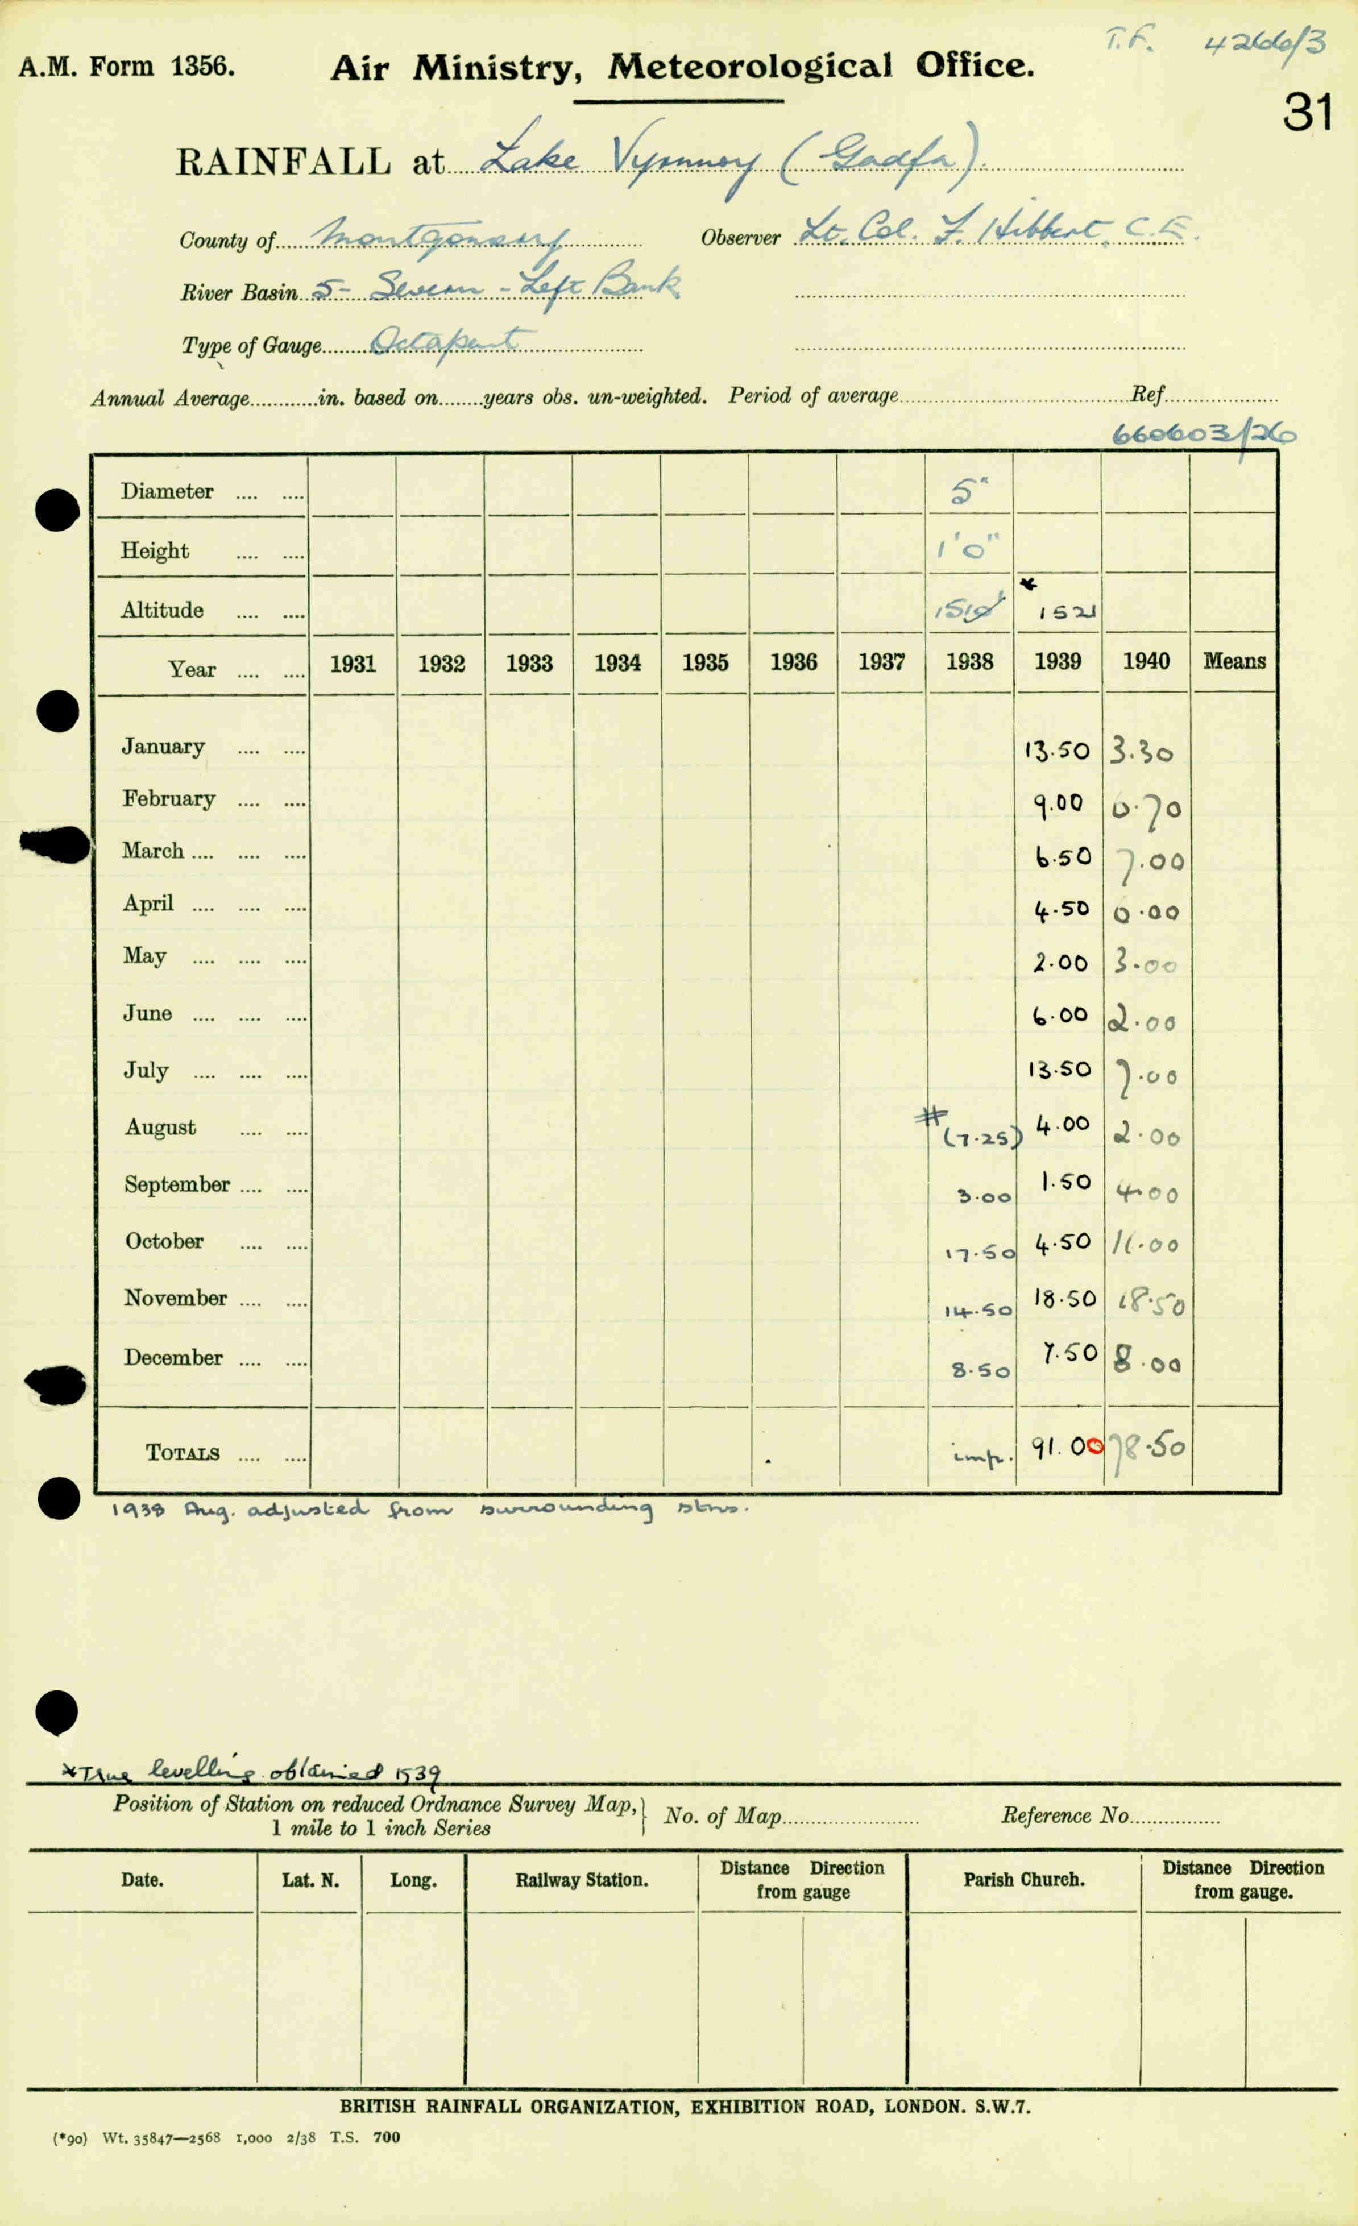 T.F. 4266/3
A.M. Form 1356. Air Ministry, Meteorological Office.
31
RAINFALL at Lake Vyrnwy (Gadfa).
County of Montgomery Observer Lt. Col. F. Hibbert, C.E.
River Basin 5 - Severn - Left Bank
Type of Gauge Octapent
Annual Average............in. based on........years obs. un-weighted. Period of average.......... Ref..........
660603/26
Diameter .... .... 5"
Height .... .... 1'0"
Altitude .... .... 1510' * 1521
Year .... .... 1931 1932 1933 1934 1935 1936 1937 1938 1939 1940 Means
January .... .... 13.50 3.30
February .... .... 9.00 6.70
March .... .... .... 6.50 7.00
April .... .... .... 4.50 6.00
May .... .... .... 2.00 3.00
June .... .... .... 6.00 2.00
July .... .... .... 13.50 7.00
August .... .... # (7.25) 4.00 2.00
September .... .... 3.00 1.50 4.00
October .... .... 17.50 4.50 11.00
November .... .... 14.50 18.50 18.50
December .... .... 8.50 7.50 8.00
TOTALS .... .... imp. 91.00 78.50
1938 Aug. adjusted from surrounding stns.
*True levelling obtained 1939
Position of Station on reduced Ordnance Survey Map, } No. of Map.......... Reference No..........
1 mile to 1 inch Series
Date. Lat. N. Long. Railway Station. Distance Direction from gauge Parish Church. Distance Direction from gauge.
BRITISH RAINFALL ORGANIZATION, EXHIBITION ROAD, LONDON. S.W.7.
(*90) Wt. 35847—2568 1,000 2/38 T.S. 700